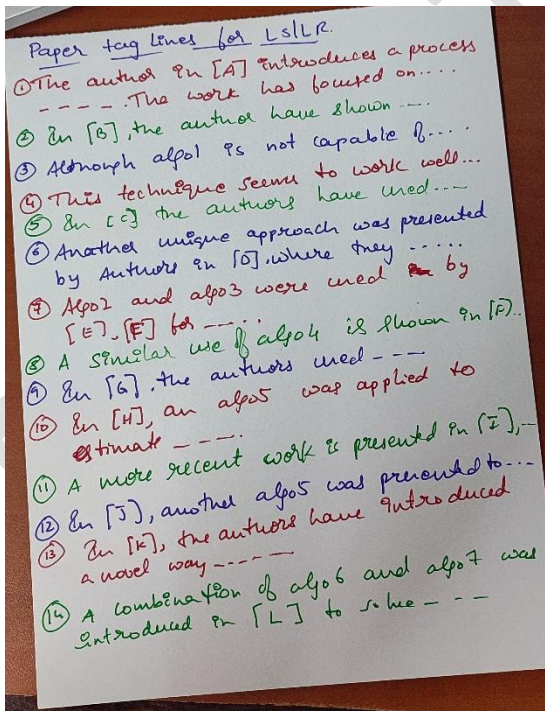 Paper tag Lines for LS/LR.
① The author in [A] introduces a process
- - - - . The work has focused on....
② In [B], the author have shown ....
③ Although algo1 is not capable of....
④ This technique seems to work well...
⑤ In [C] the authors have used....
⑥ Another unique approach was presented
by Authors in [D], where they .....
⑦ Algo2 and algo3 were used by
[E], [E] for .....
⑧ A similar use of algo4 is shown in [F]..
⑨ In [G], the authors used - - -
⑩ In [H], an algo5 was applied to
estimate - - - .
⑪ A more recent work is presented in [I], -
⑫ In [J], another algo5 was presented to...
⑬ In [K], the authors have introduced
a novel way - - - - -
⑭ A combination of algo6 and algo7 was
introduced in [L] to solve - - -